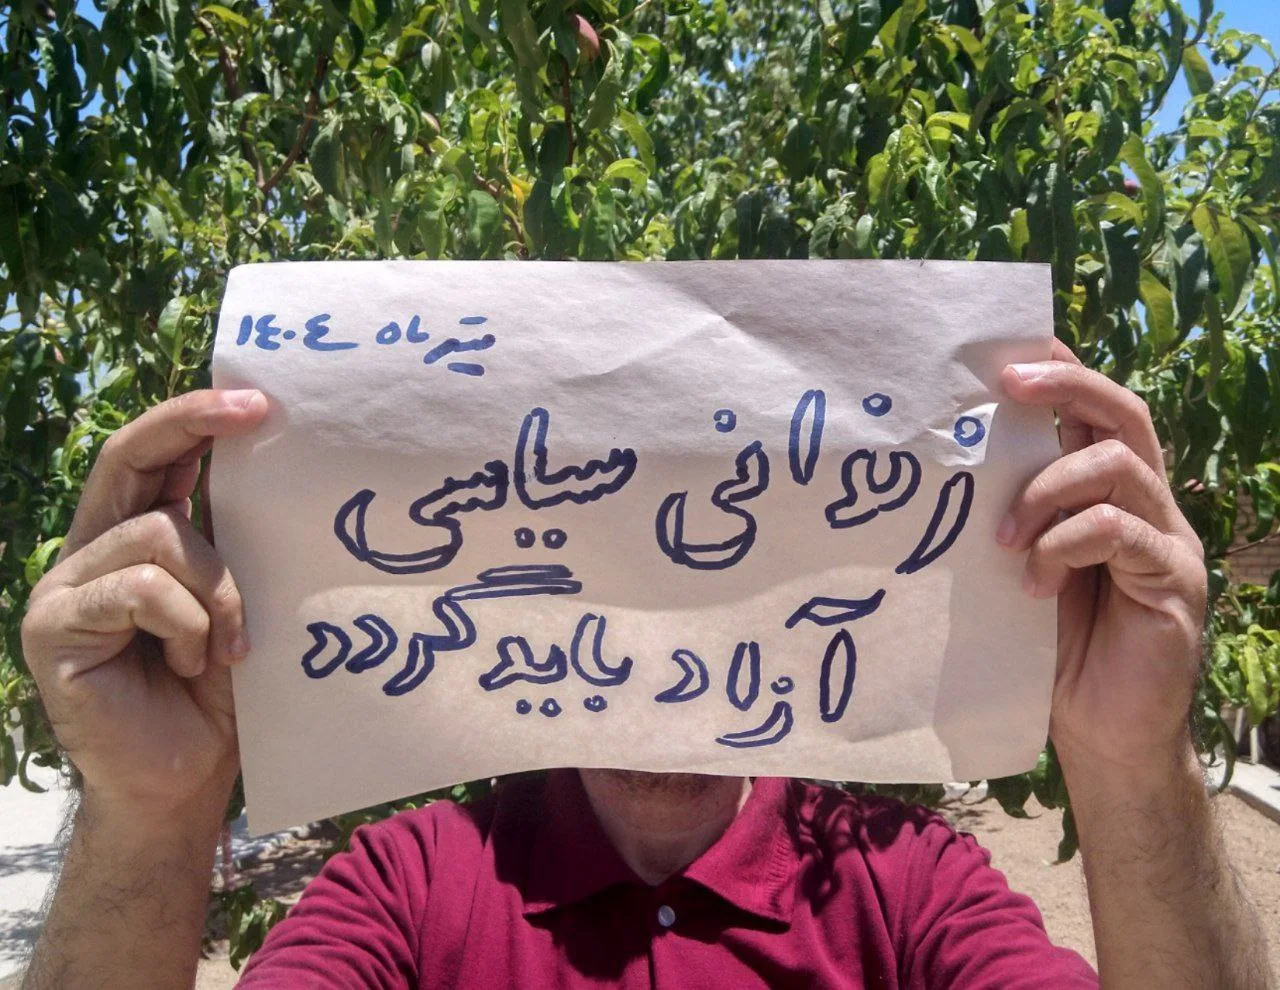 تیر ماه ١٤٠٤
زندانی سیاسی
آزاد باید گردد